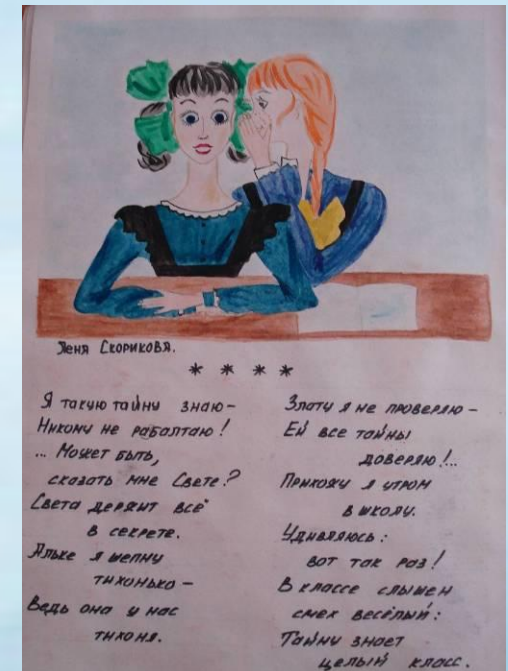 Женя Скорикова.
* * * *
Я такую тайну знаю –
Никому не рабалтаю!
... Может быть,
сказать мне Свете?
Света держит всё
в секрете.
Альке я шепну
тихонько –
Ведь она у нас
тихоня.
Злату я не проверяю –
Ей все тайны
доверяю!..
Прихожу я утром
в школу.
Удивляюсь:
вот так раз!
В классе слышен
смех весёлый:
Тайну знает
целый класс.